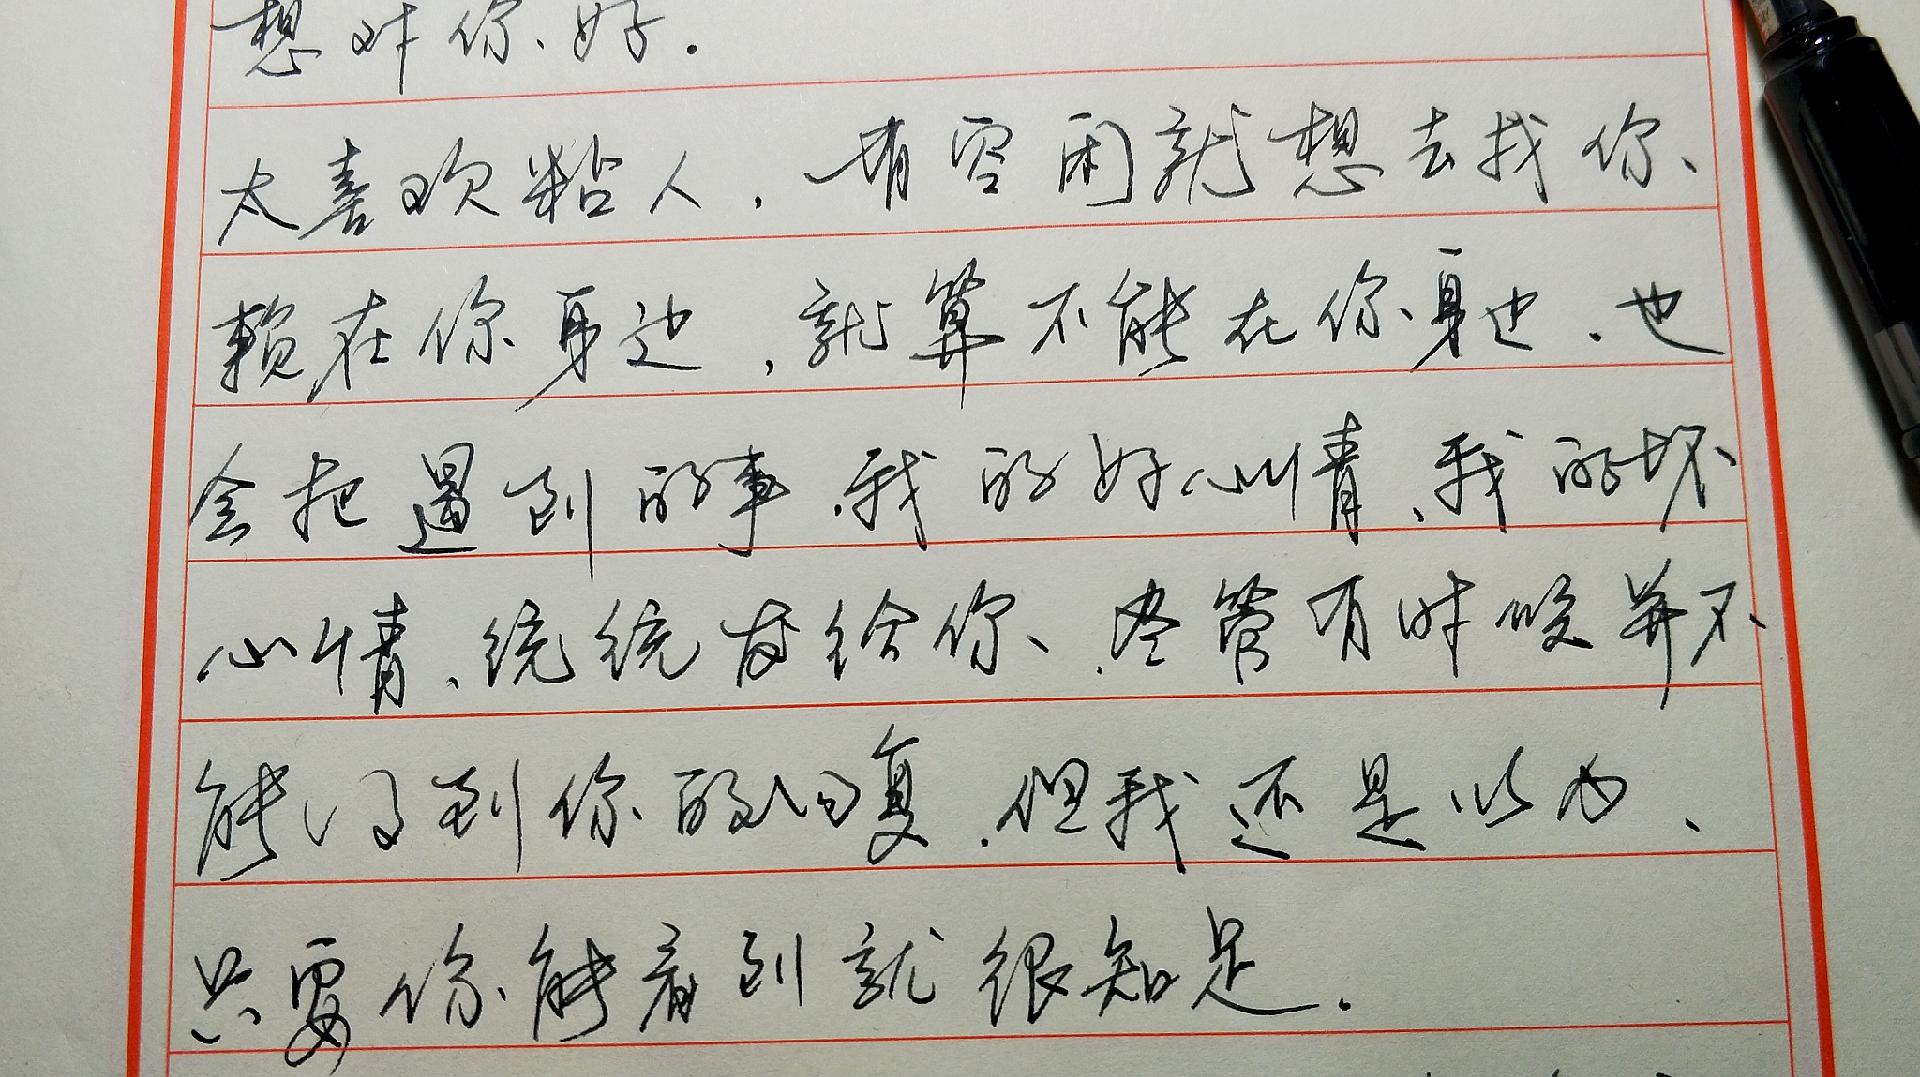 想对你好.
太喜欢粘人，一有空闲就想去找你、
赖在你身边，就算不能在你身边，也
会把遇到的事、我的好心情、我的坏
心情、统统发给你、尽管有时候并不
能得到你的回复，但我还是以为、
只要你能看到就很知足.